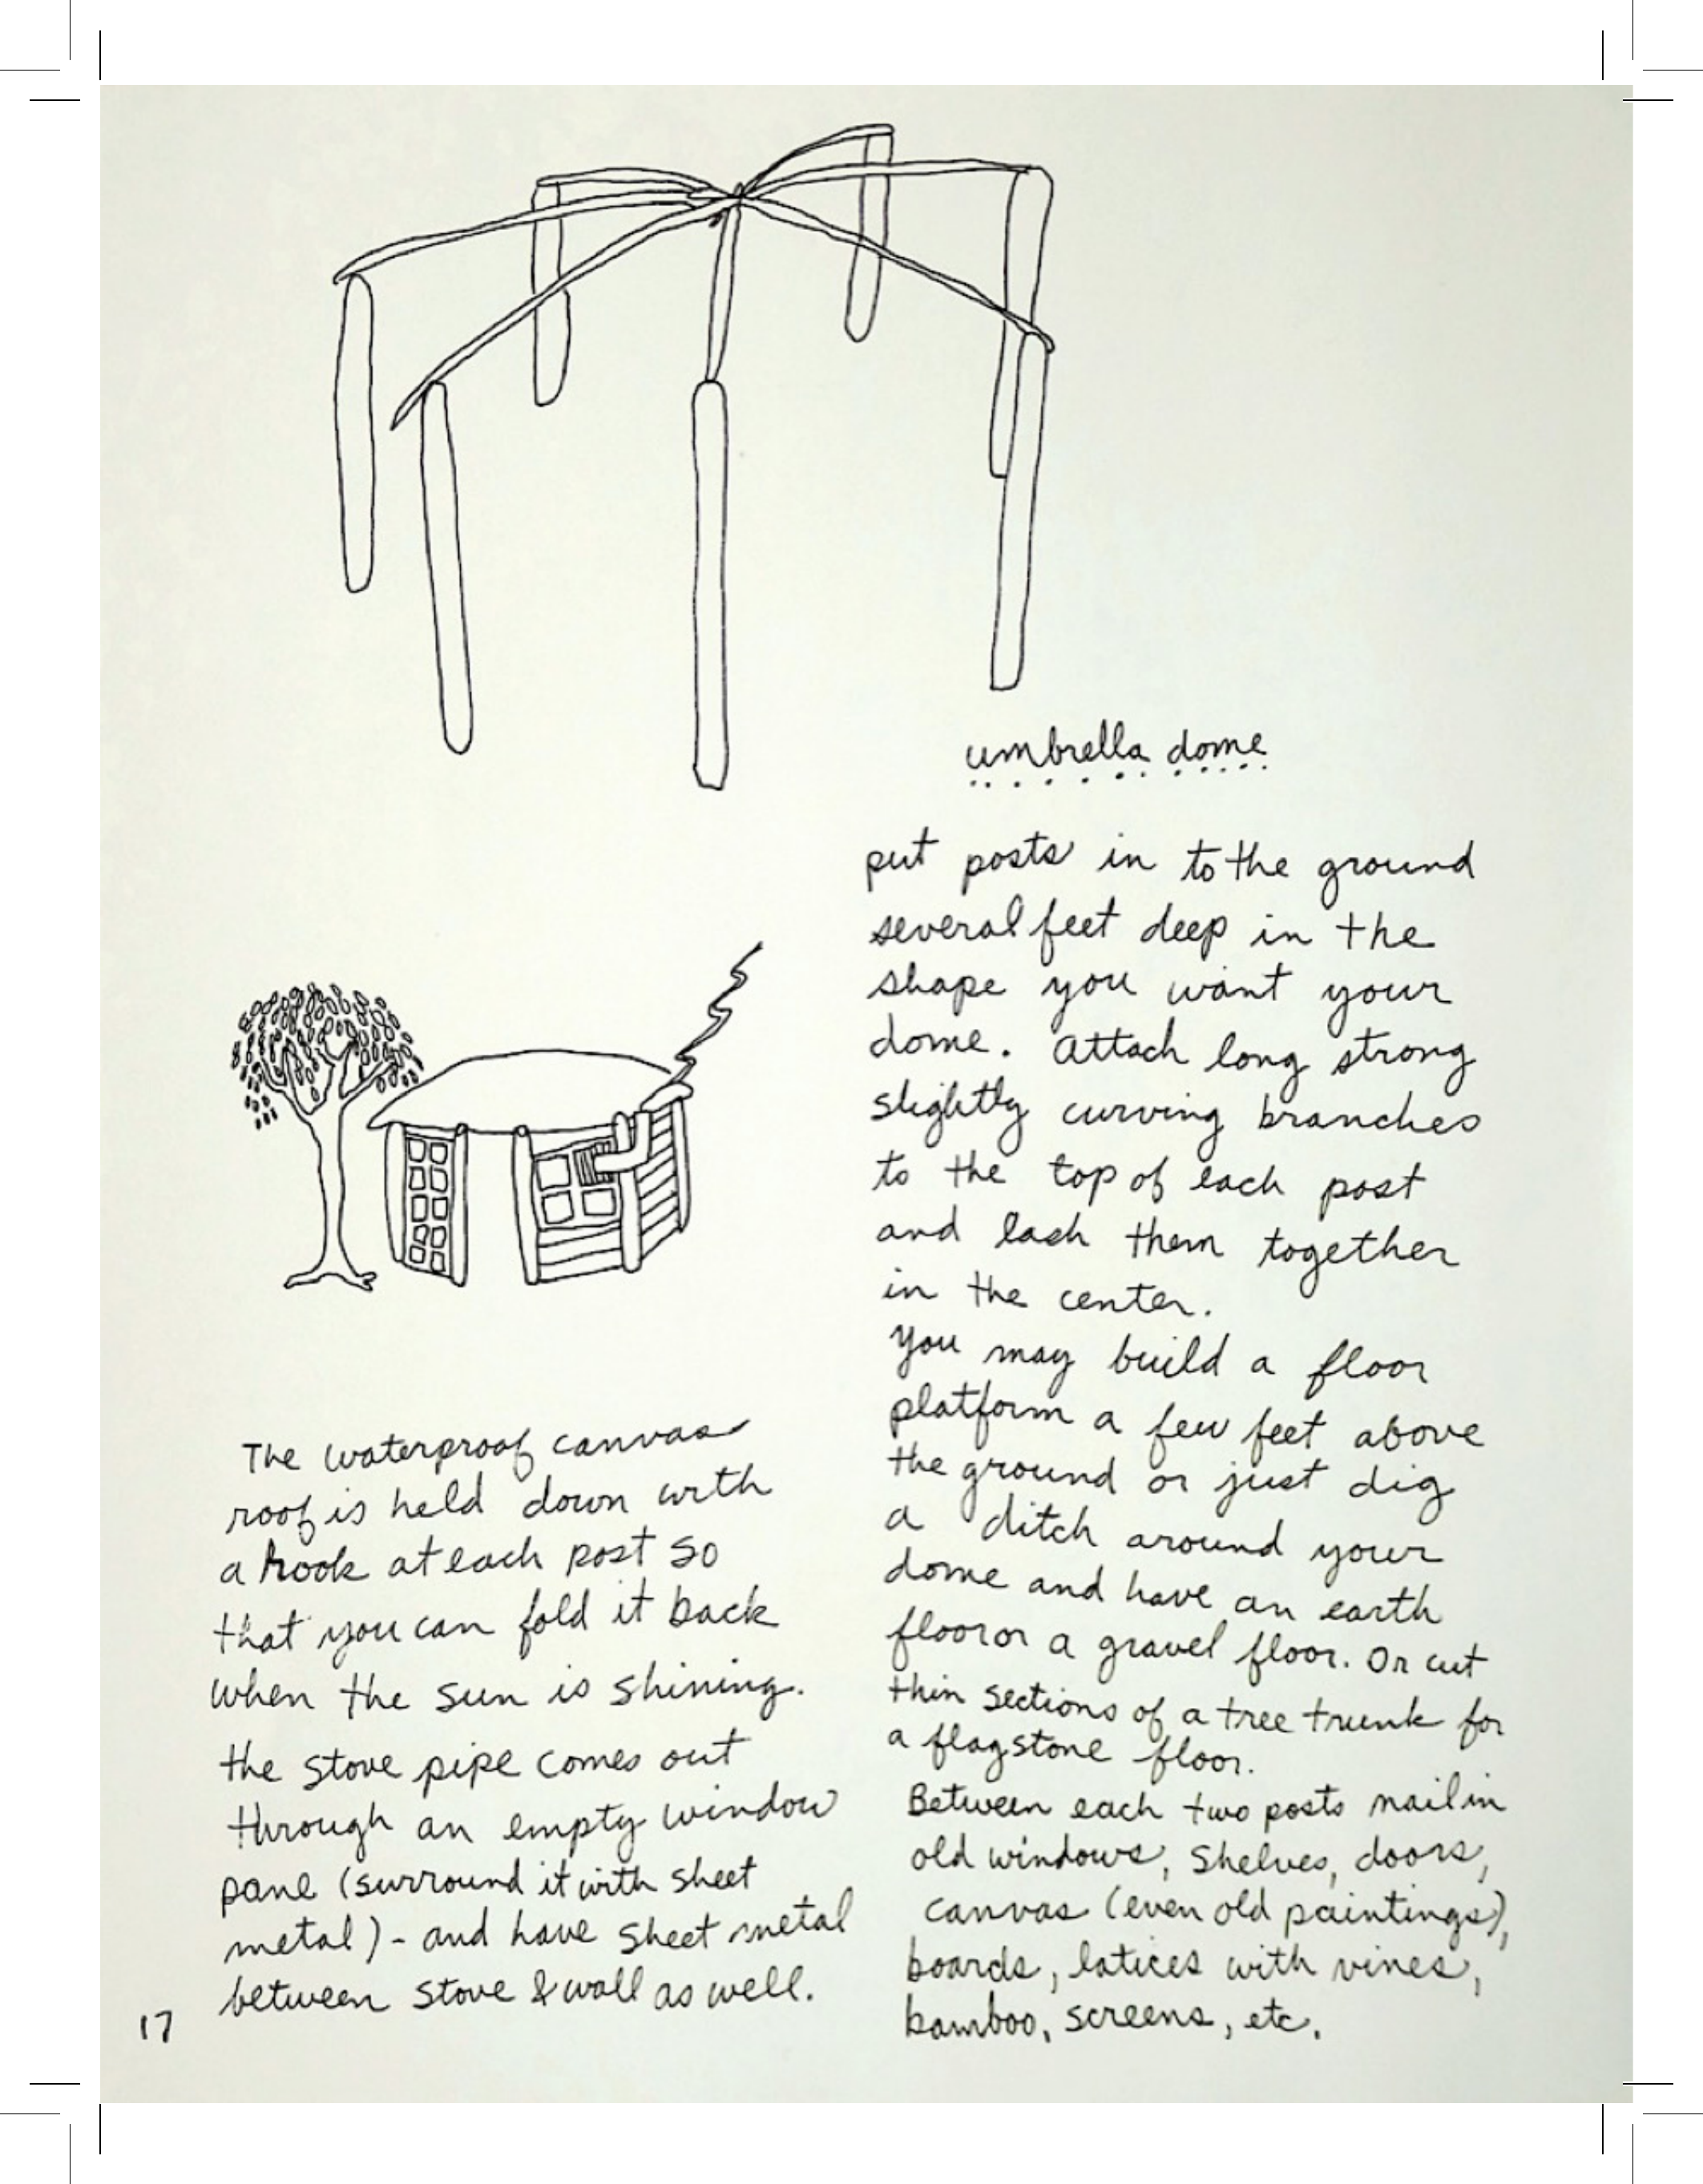 umbrella dome
put posts in to the ground
several feet deep in the
shape you want your
dome. Attach long strong
slightly curving branches
to the top of each post
and lash them together
in the center.
You may build a floor
platform a few feet above
the ground or just dig
a ditch around your
dome and have an earth
floor or a gravel floor. Or cut
thin sections of a tree trunk for
a flagstone floor.
Between each two posts nail in
old windows, shelves, doors,
canvas (even old paintings),
boards, latices with vines,
bamboo, screens, etc.
The waterproof canvas
roof is held down with
a hook at each post so
that you can fold it back
when the sun is shining.
the stove pipe comes out
through an empty window
pane (surround it with sheet
metal) - and have sheet metal
between stove & wall as well.
17